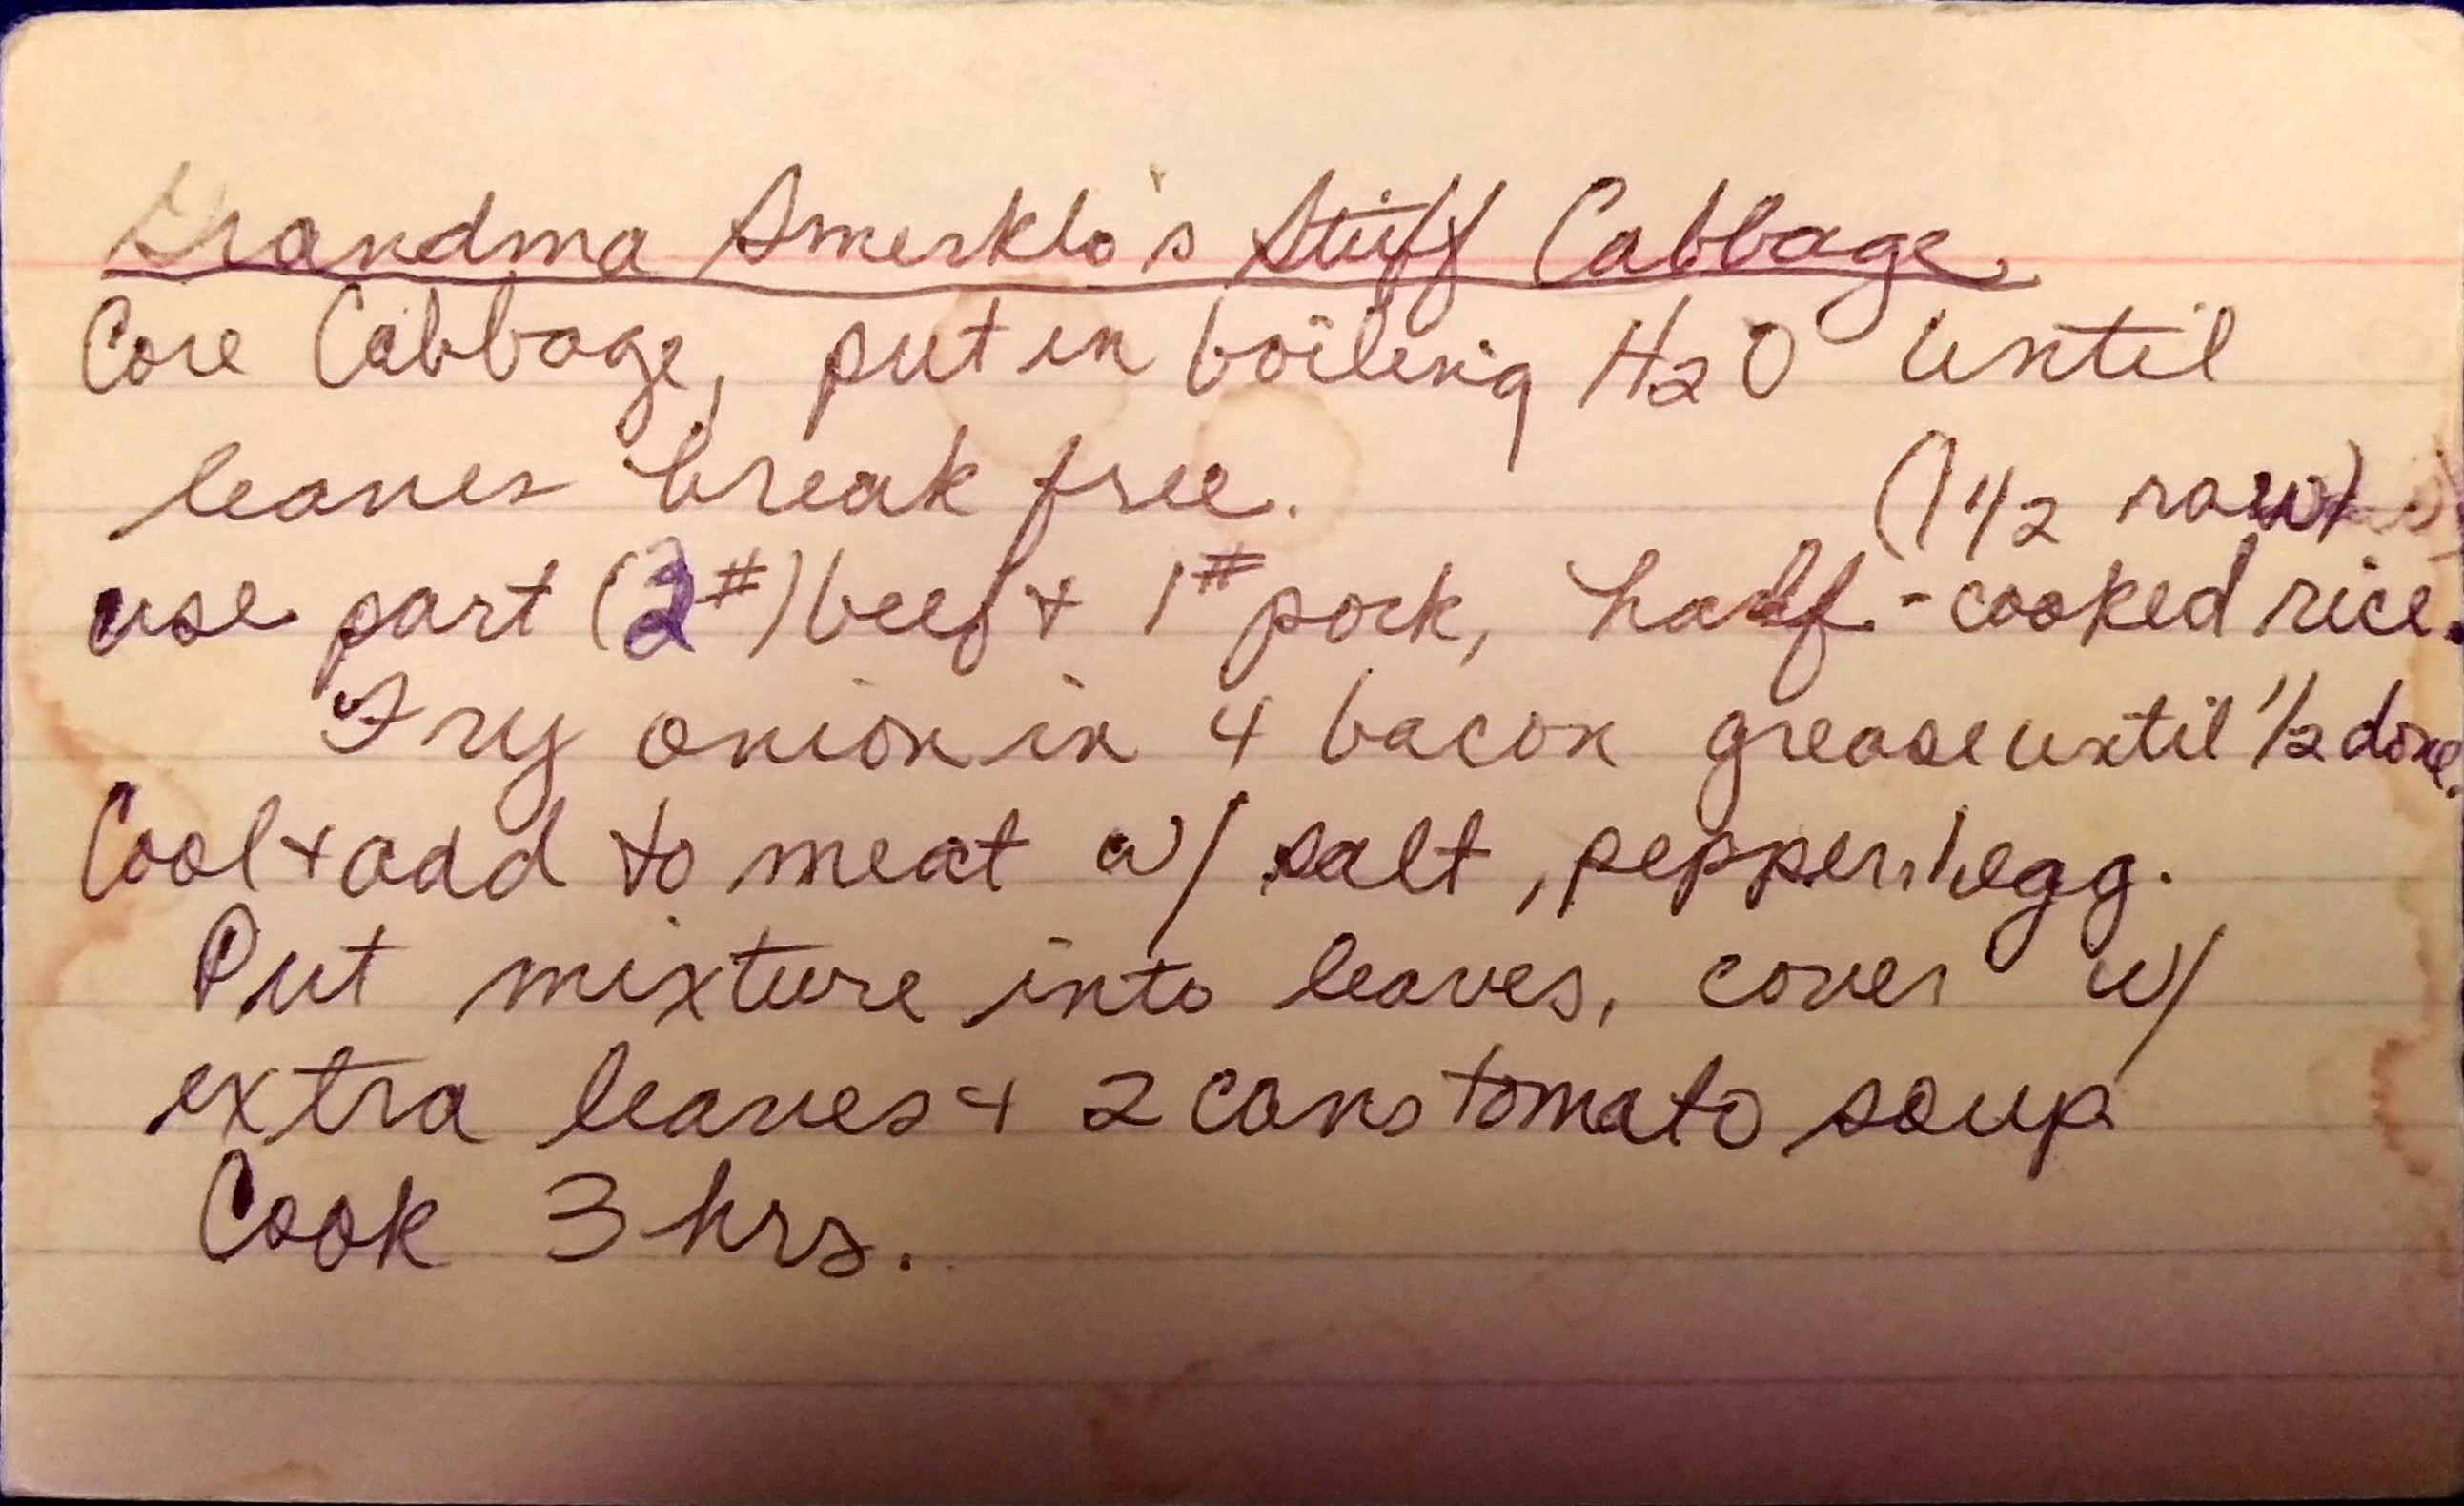 Grandma Smerklo's Stuff Cabbage
Core Cabbage, put in boiling H2O until
leaves break free.
(1 1/2 raw)
use part (2#) beef + 1# pork, half-cooked rice.
Fry onion in 4 bacon grease until 1/2 done.
Cool + add to meat w/ salt, pepper, 1 egg.
Put mixture into leaves, cover w/
extra leaves + 2 cans tomato soup
Cook 3 hrs.